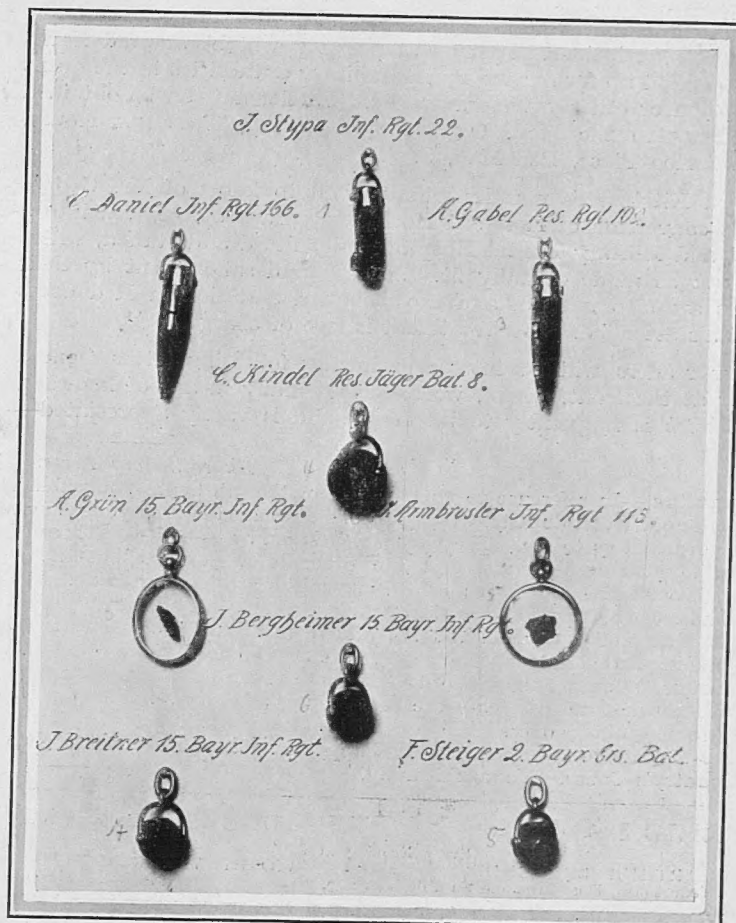 J. Stypa Inf. Rgt. 22.
C. Daniel Inf. Rgt. 166. 1
A. Gabel Res. Rgt. 109.
3
C. Kindel Res. Jäger Bat. 8.
4
A. Grün 15. Bayr. Inf. Rgt.
Armbruster Inf. Rgt 113.
J. Bergheimer 15. Bayr. Inf. Rgt.
6
J. Breitner 15. Bayr. Inf. Rgt.
F. Steiger 2. Bayr. Ers. Bat.
5